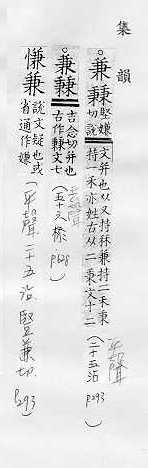 集韻
兼𥡝 堅嫌切說文并也从又持秝兼持二禾秉持一禾亦姓古从二秉文十二 (二十五沾 P293) 平聲
兼𥡝 吉念切并也古作𥡝文七 (五十六㮇 P628) 去聲
慊兼 說文疑也或省通作嫌 (平聲二十五沾 堅兼切 P293)